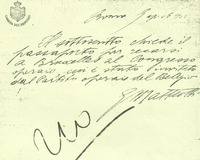 Roma
Il sottoscritto chiede il
passaporto per recarsi
a Bruxelles al Congresso
operaio cui è stato invitato
dal Partito operaio del Belgio
G Matteotti